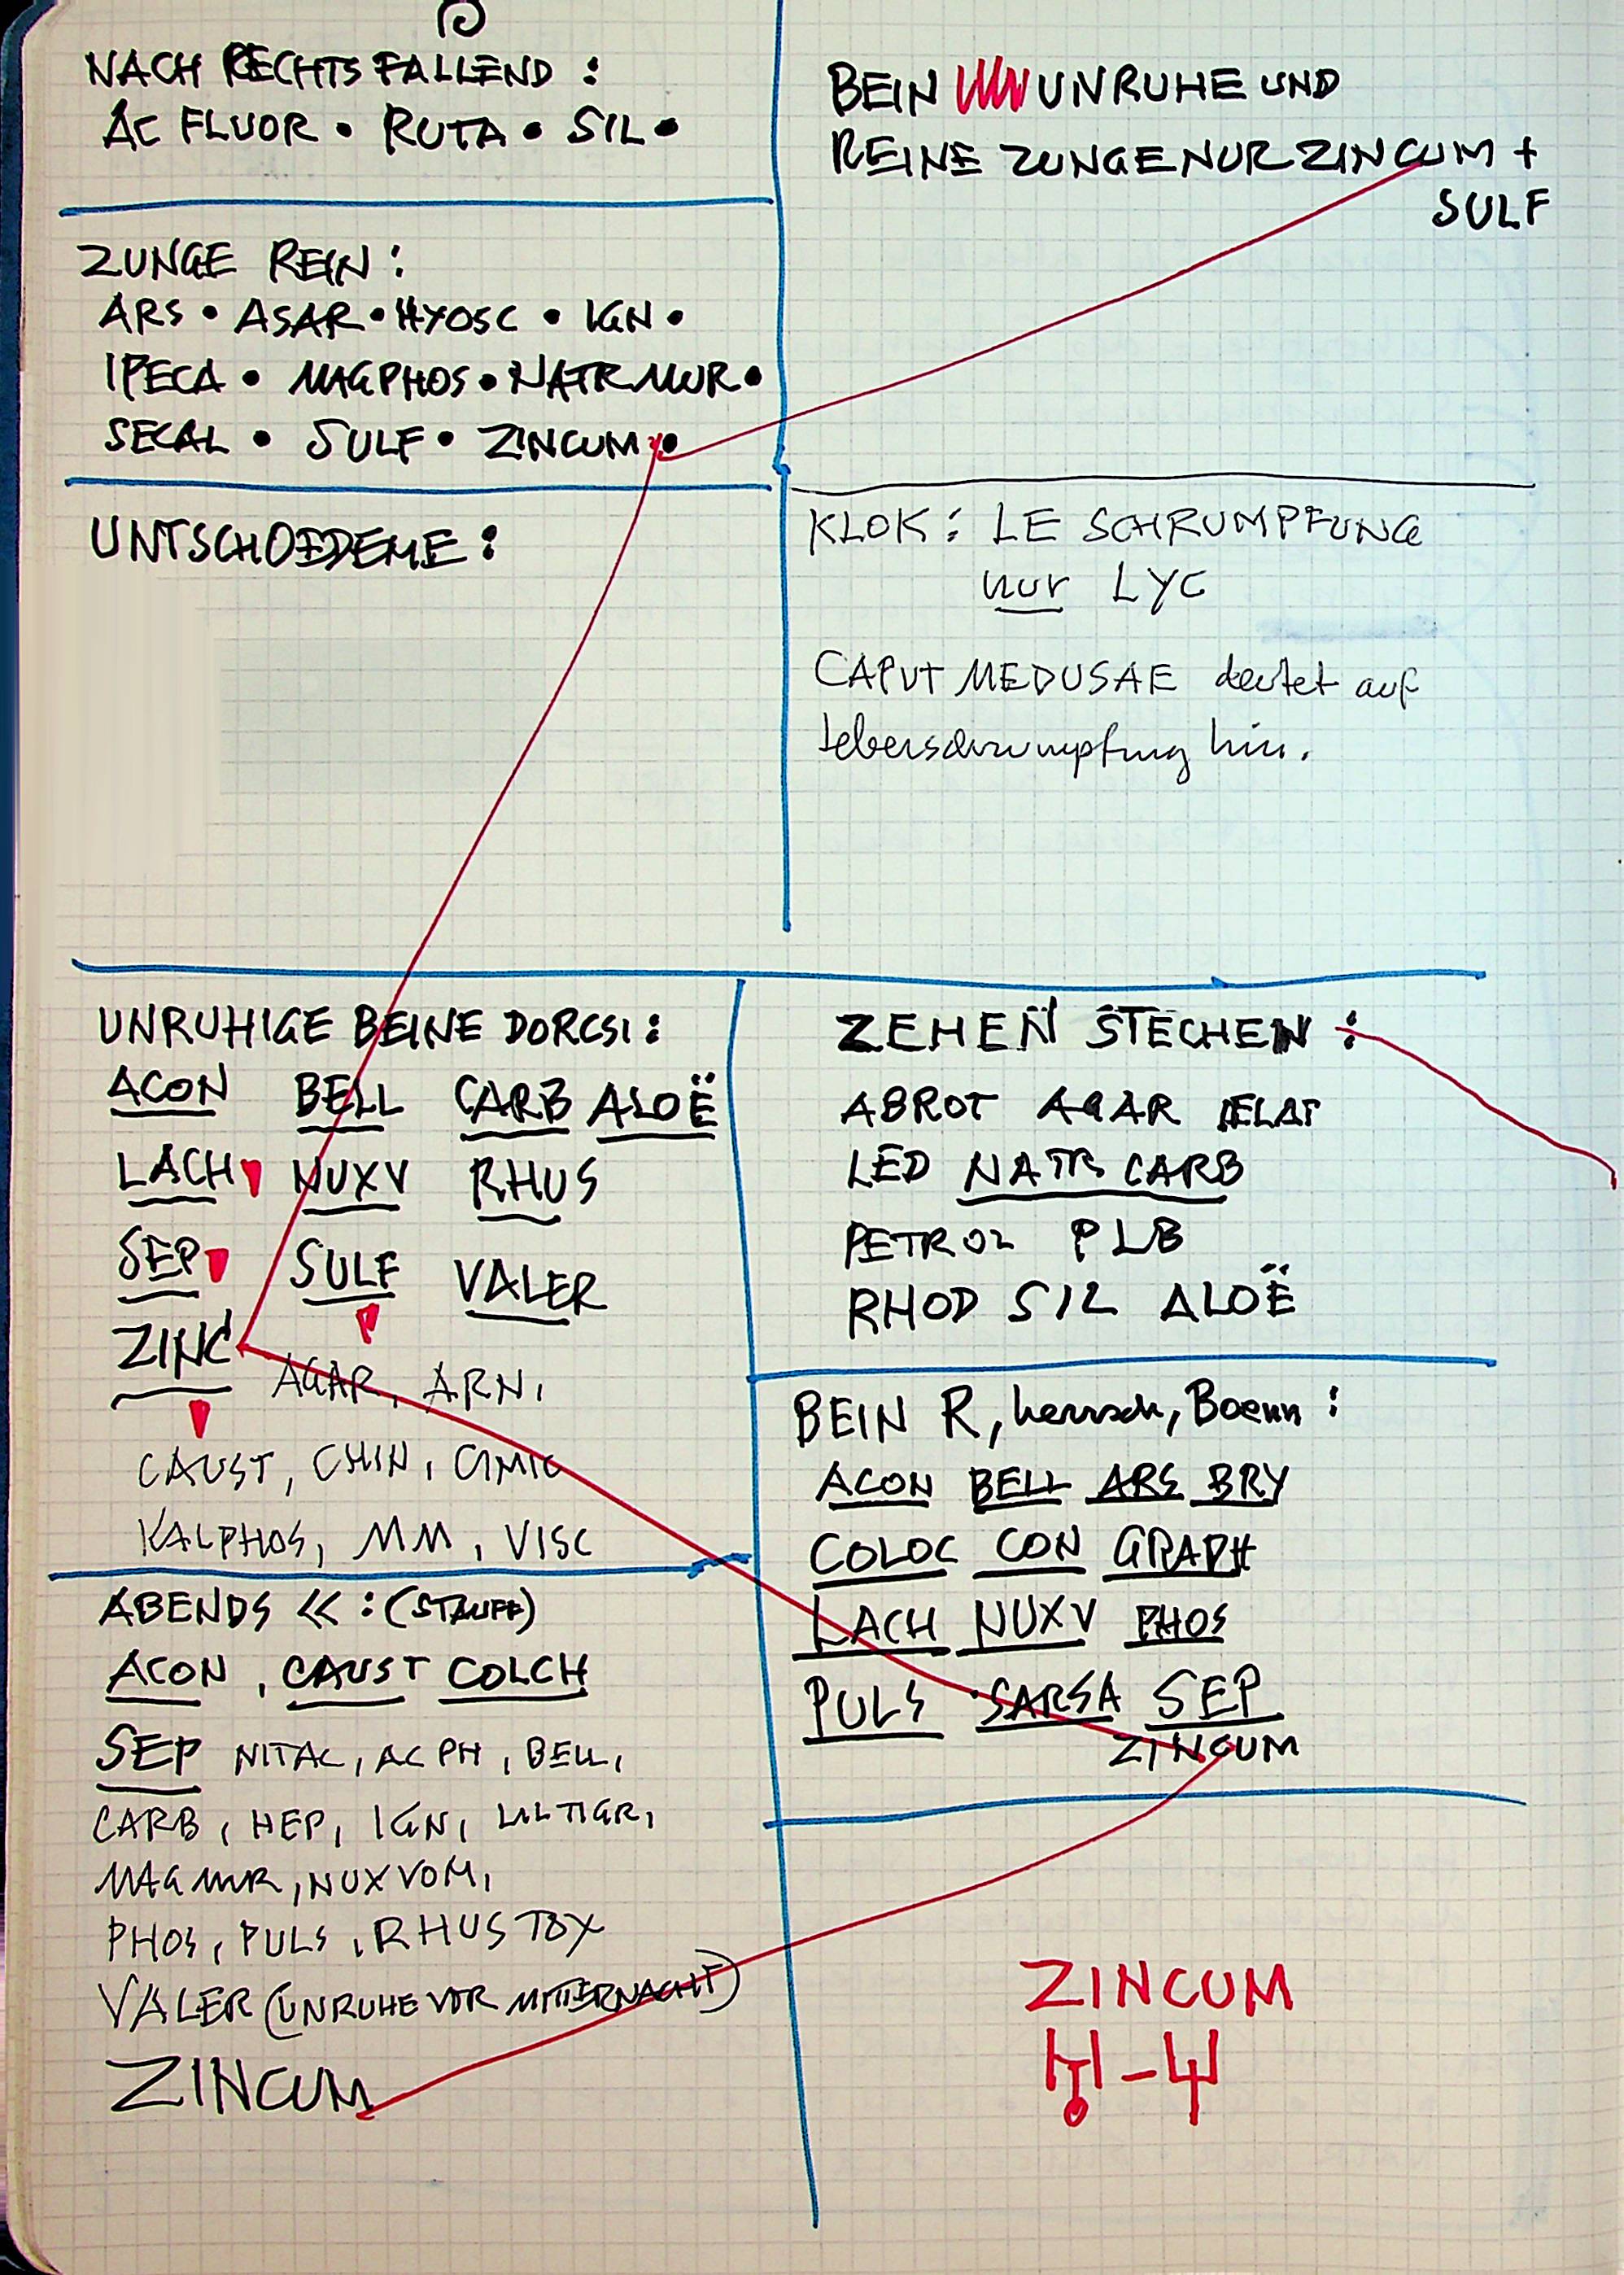 NACH RECHTS FALLEND :
AC FLUOR • RUTA • SIL •
ZUNGE REIN :
ARS • ASAR • HYOSC • IGN •
IPECA • MAGPHOS • NATRMUR •
SECAL • SULF • ZINCUM •
UNTSCHOEDEME :
BEIN UNRUHE UND
REINE ZUNGE NUR ZINCUM +
SULF
KLOK : LE SCHRUMPFUNG
nur LYC
CAPUT MEDUSAE deutet auf
Leberschrumpfung hin.
UNRUHIGE BEINE DORCSI :
ACON BELL CARB ALOË
LACH NUXV RHUS
SEP SULF VALER
ZINC AGAR, ARN,
CAUST, CHIN, CIMIC
KALPHOS, MM, VISC
ABENDS << : (STAUFF)
ACON, CAUST COLCH
SEP NITAC, AC PH, BELL,
CARB, HEP, IGN, LILTIGR,
MAGMUR, NUXVOM,
PHOS, PULS, RHUS TOX
VALER (UNRUHE VOR MITTERNACHT)
ZINCUM
ZEHEN STECHEN :
ABROT AGAR
LED NATR CARB
PETROL PLB
RHOD SIL ALOË
BEIN R, herrsch, Boenn :
ACON BELL ARS BRY
COLOC CON GRAPH
LACH NUXV PHOS
PULS SARSA SEP
ZINCUM
ZINCUM
♅ - ♆